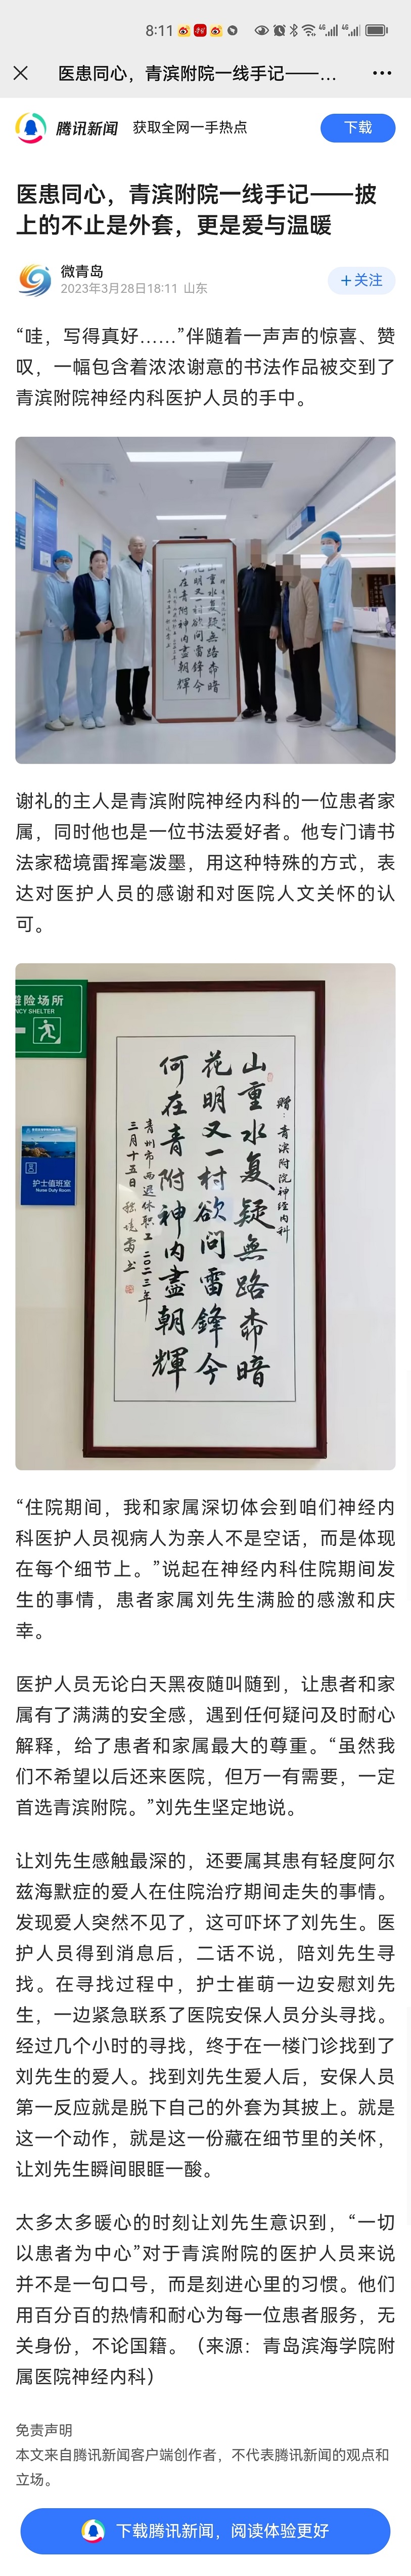 8:11
医患同心，青滨附院一线手记——...
腾讯新闻 获取全网一手热点
下载
医患同心，青滨附院一线手记——披
上的不止是外套，更是爱与温暖
微青岛
2023年3月28日18:11 山东
+关注
“哇，写得真好……”伴随着一声声的惊喜、赞
叹，一幅包含着浓浓谢意的书法作品被交到了
青滨附院神经内科医护人员的手中。
山重水复疑無路命暗
花明又一村欲问雷鋒今
在青附神内盡朝輝
谢礼的主人是青滨附院神经内科的一位患者家
属，同时他也是一位书法爱好者。他专门请书
法家嵇境雷挥毫泼墨，用这种特殊的方式，表
达对医护人员的感谢和对医院人文关怀的认
可。
避险场所
NCY SHELTER
护士值班室
Nurse Duty Room
赠：青滨附院神经内科
山重水复疑無路命暗
花明又一村欲问雷鋒今
何在青附神内盡朝輝
青州市西退休职工二〇二三年
三月十五日嵇境雷书
“住院期间，我和家属深切体会到咱们神经内
科医护人员视病人为亲人不是空话，而是体现
在每个细节上。”说起在神经内科住院期间发
生的事情，患者家属刘先生满脸的感激和庆
幸。
医护人员无论白天黑夜随叫随到，让患者和家
属有了满满的安全感，遇到任何疑问及时耐心
解释，给了患者和家属最大的尊重。“虽然我
们不希望以后还来医院，但万一有需要，一定
首选青滨附院。”刘先生坚定地说。
让刘先生感触最深的，还要属其患有轻度阿尔
兹海默症的爱人在住院治疗期间走失的事情。
发现爱人突然不见了，这可吓坏了刘先生。医
护人员得到消息后，二话不说，陪刘先生寻
找。在寻找过程中，护士崔萌一边安慰刘先
生，一边紧急联系了医院安保人员分头寻找。
经过几个小时的寻找，终于在一楼门诊找到了
刘先生的爱人。找到刘先生爱人后，安保人员
第一反应就是脱下自己的外套为其披上。就是
这一个动作，就是这一份藏在细节里的关怀，
让刘先生瞬间眼眶一酸。
太多太多暖心的时刻让刘先生意识到，“一切
以患者为中心”对于青滨附院的医护人员来说
并不是一句口号，而是刻进心里的习惯。他们
用百分百的热情和耐心为每一位患者服务，无
关身份，不论国籍。（来源：青岛滨海学院附
属医院神经内科）
免责声明
本文来自腾讯新闻客户端创作者，不代表腾讯新闻的观点和
立场。
下载腾讯新闻，阅读体验更好